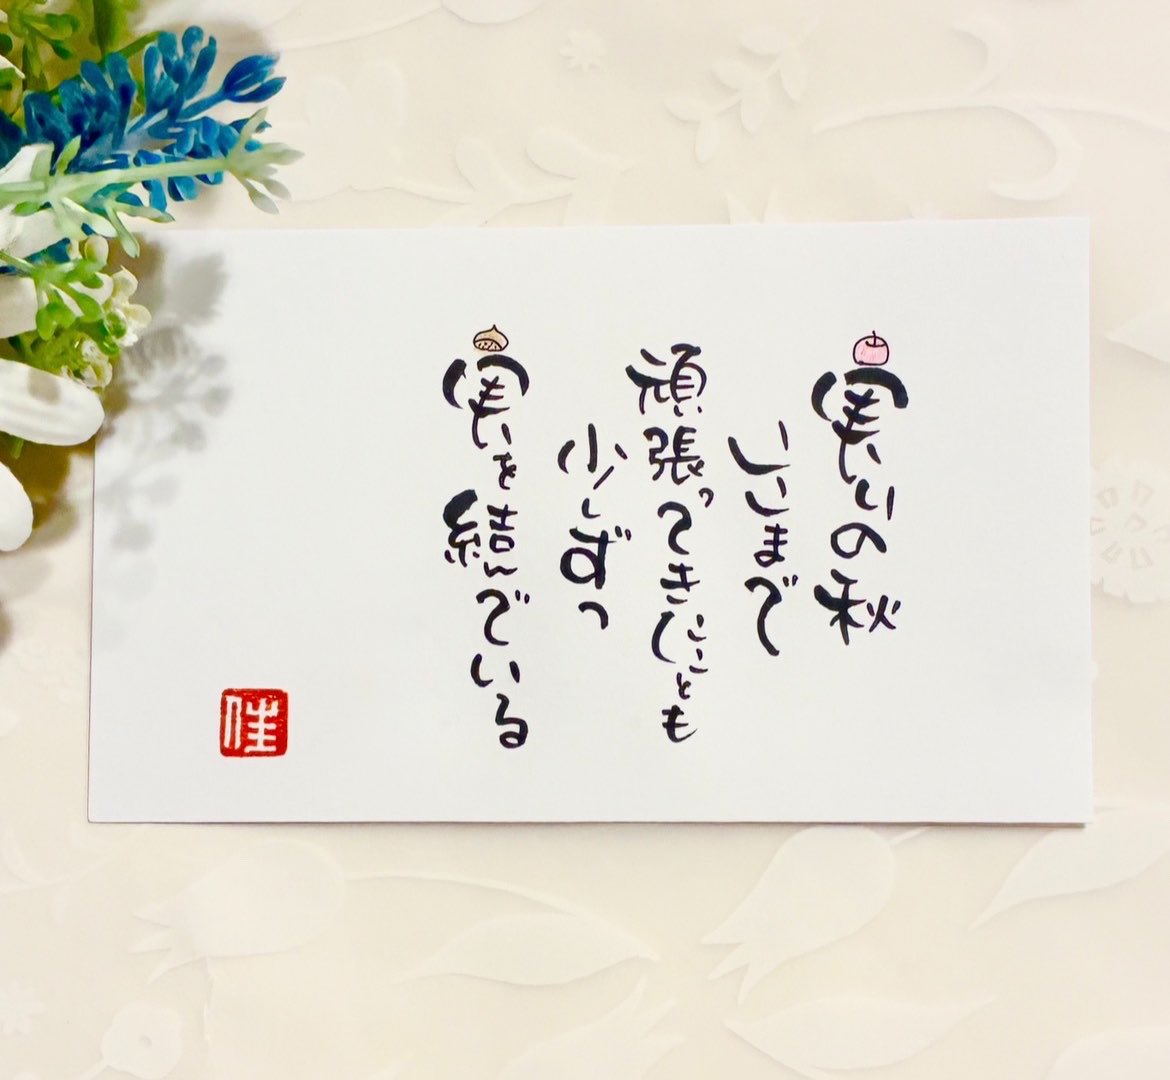 実りの秋
いままで
頑張ってきたことも
少しずつ
実を結んでいる
佳